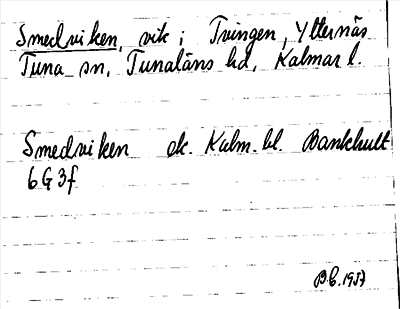 Smedviken, vik i Tvingen, Ytternäs
Tuna sn, Tunaläns hd, Kalmar l.
Smedviken ek. Kalm. bl. Bankhult
6G3f
B.E. 1957